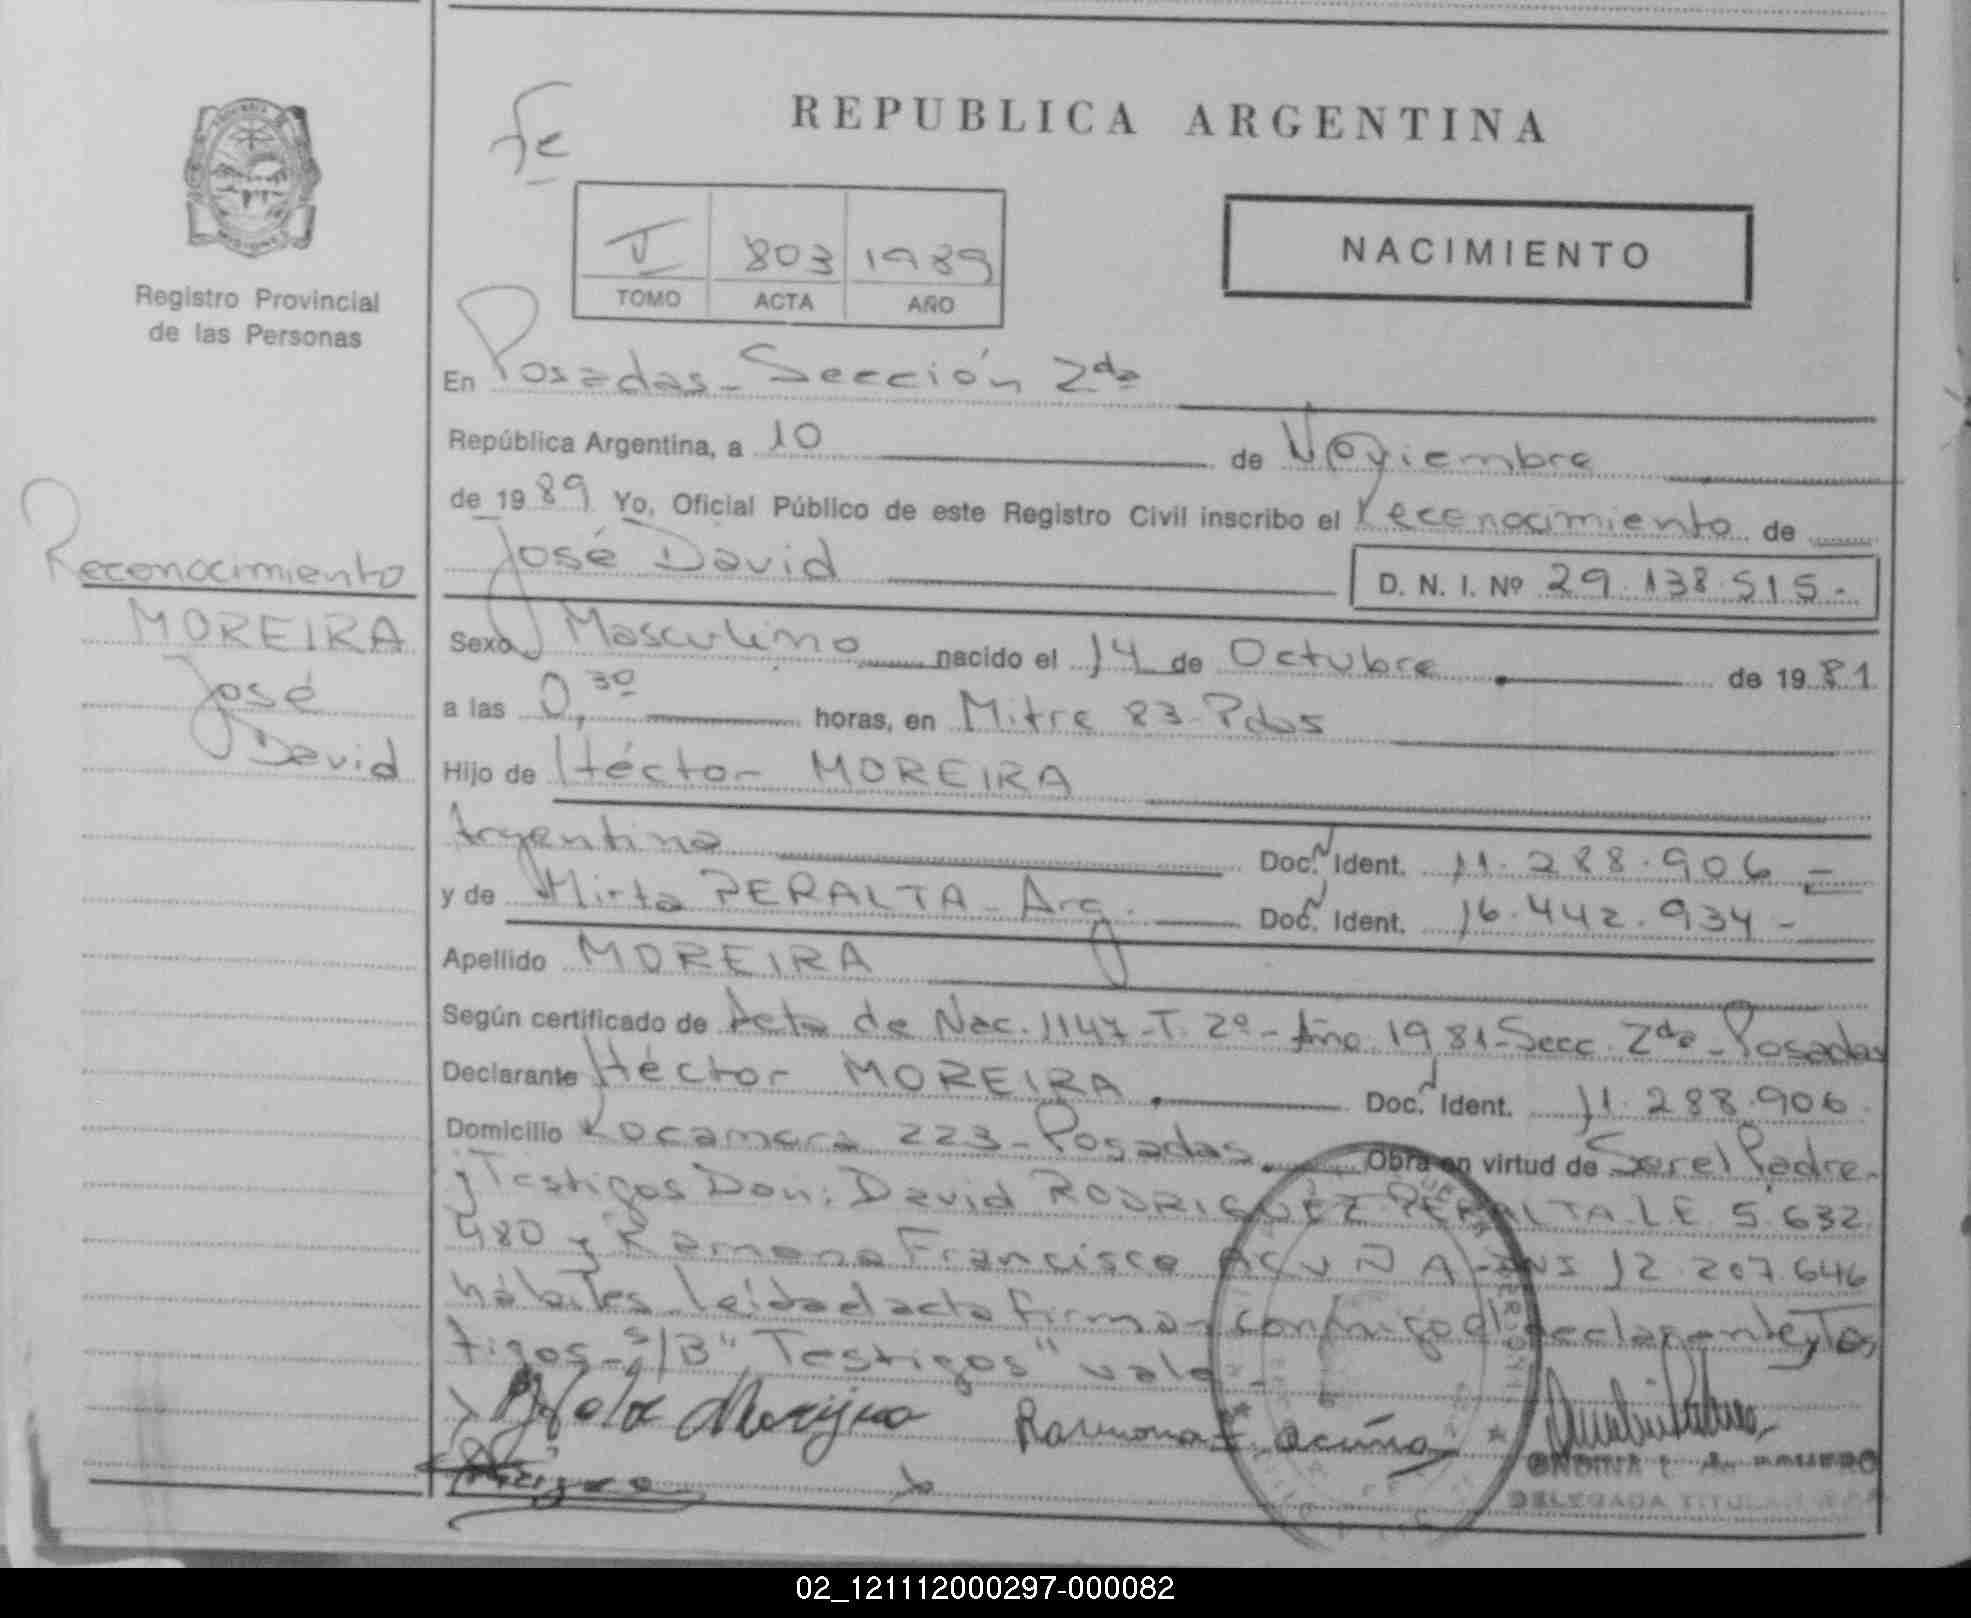 REPUBLICA ARGENTINA
Registro Provincial
de las Personas
I 803 1989
TOMO ACTA AÑO
NACIMIENTO
En Posadas - Sección 2da
República Argentina, a 10 de Noviembre
de 1989 Yo, Oficial Público de este Registro Civil inscribo el reconocimiento de
José David D. N. I. Nº 29.138.515.-
Reconocimiento
MOREIRA
José
David
Sexo Masculino nacido el 14 de Octubre de 1981
a las 0,30 horas, en Mitre 83 - Pdas
Hijo de Héctor MOREIRA
Argentino Doc. Ident. 11.288.906 -
y de Mirta PERALTA - Arg. Doc. Ident. 16.442.934 -
Apellido MOREIRA
Según certificado de Acta de Nac. 1147 - T. 2º - Año 1981 - Secc. 2da - Posadas
Declarante Héctor MOREIRA Doc. Ident. 11.288.906
Domicilio Rocamora 223 - Posadas Obra en virtud de Ser el Padre
y Testigos Don: David RODRIGUEZ PERALTA L.E. 5.632.
480 y Ramona Francisca ACUÑA - DNI 12.207.646
hábiles leída el acta firman conmigo el declarante y Tes
tigos - S/B "Testigos" vale -
Ramona F. Acuña
DELEGADA TITULAR
02_121112000297-000082